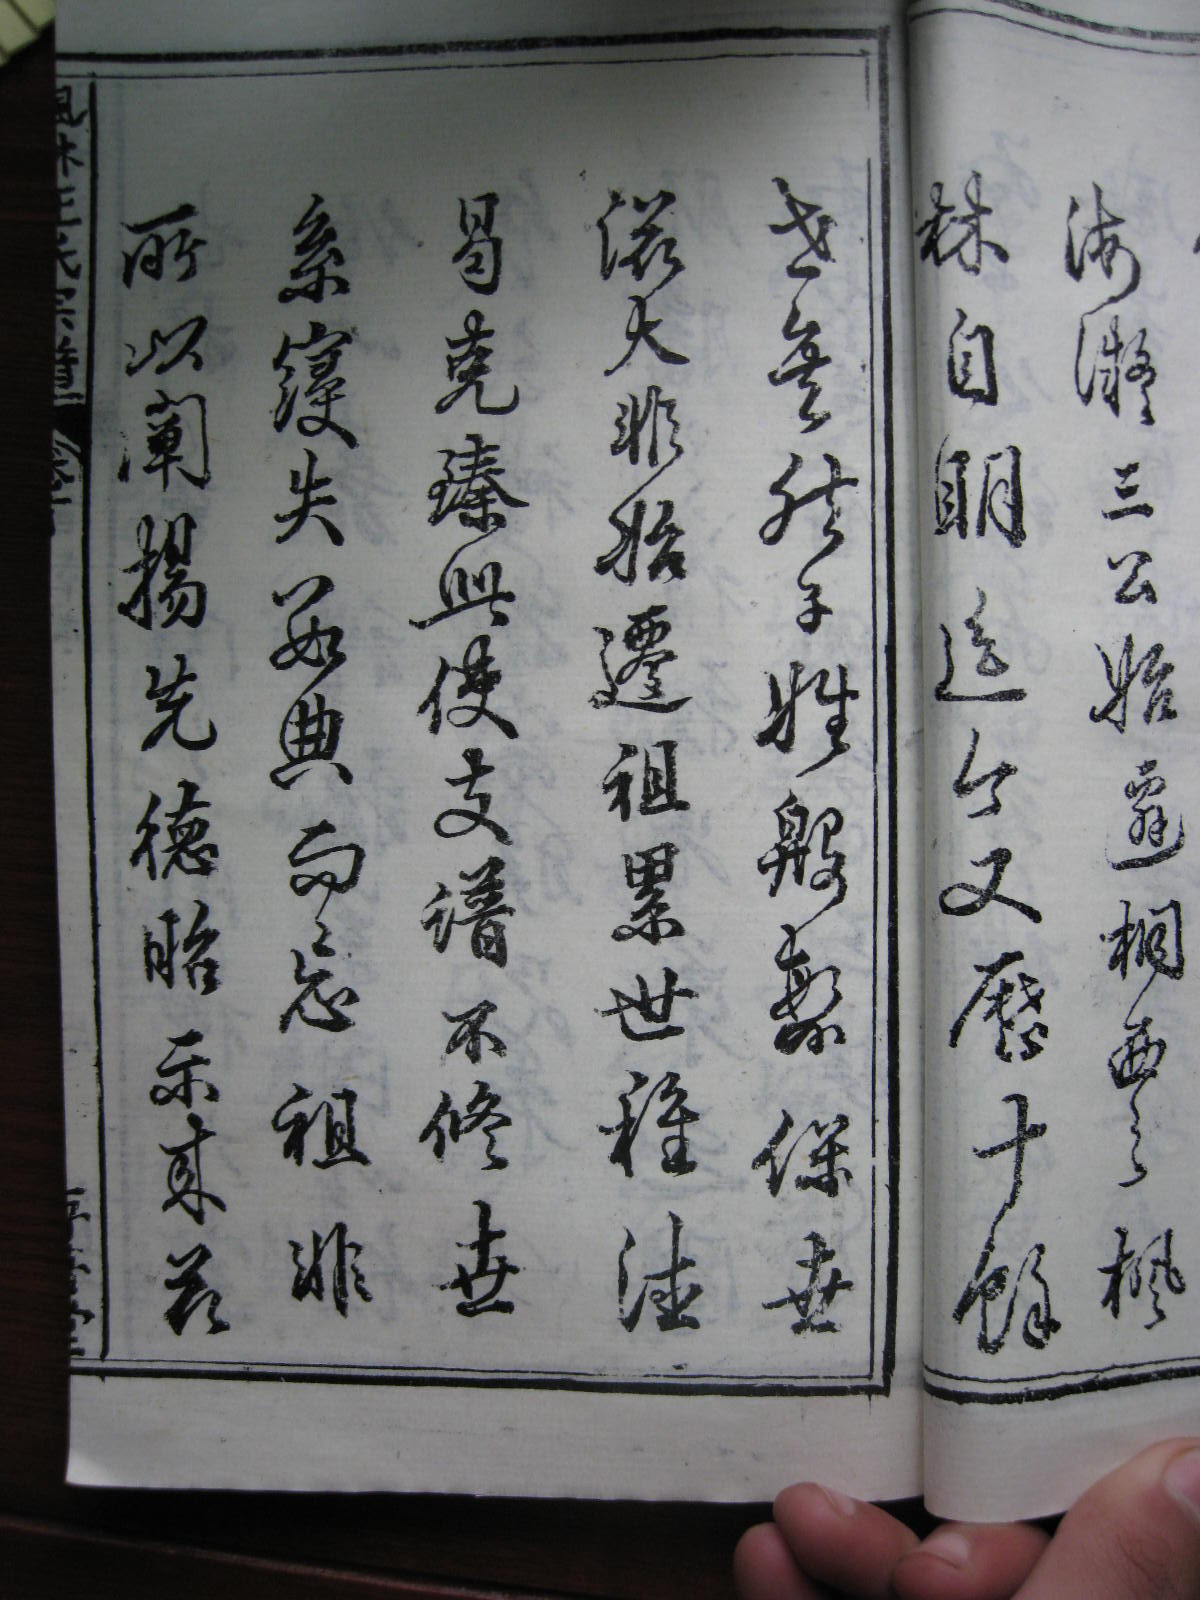 海凝三公始遷桐西之楓
林自明迄今又歷十餘
世矣然子姓殷繁保世
滋大非始遷祖累世種德
曷克臻此使支譜不修世
系寖失數典而忘祖非
所以闡揚先德昭示來茲